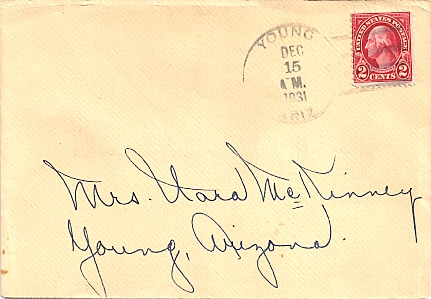 YOUNG
DEC
15
A.M.
1931
ARIZ
UNITED STATES POSTAGE
2 CENTS 2
Mrs. Clara McKinney
Young, Arizona.